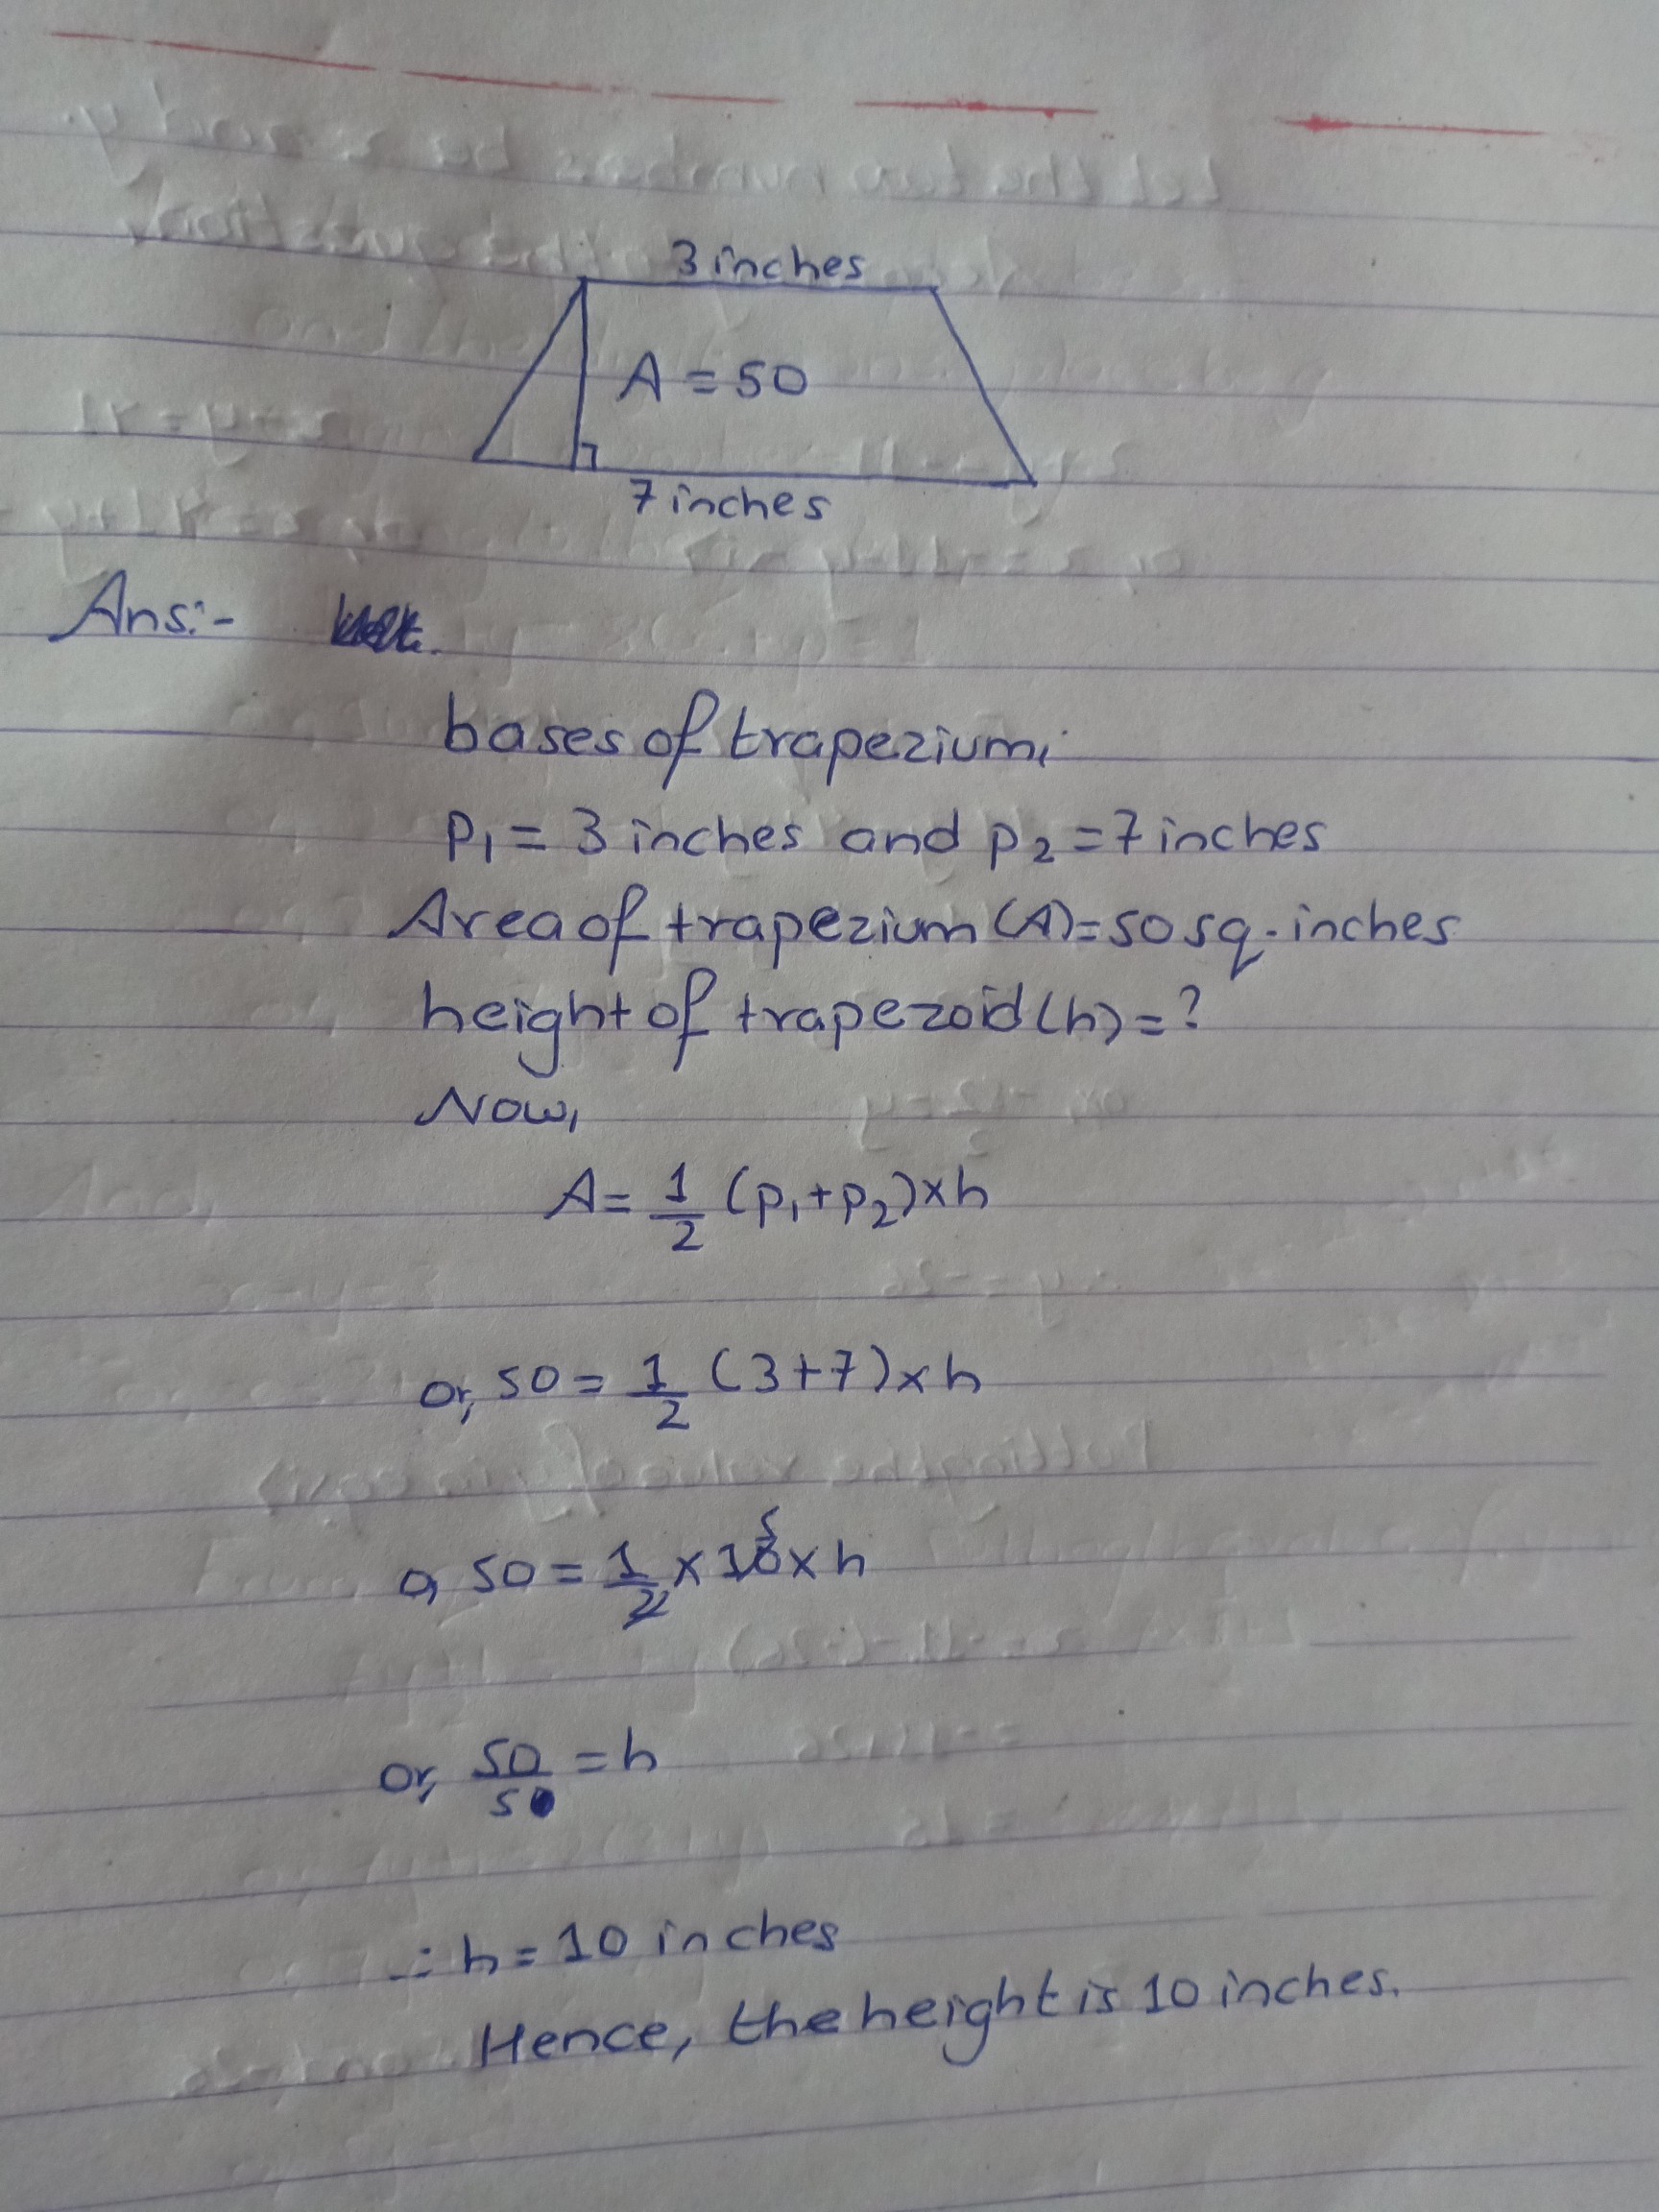 3 inches
A = 50
7 inches
Ans:-
bases of trapezium,
P₁ = 3 inches and P₂ = 7 inches
Area of trapezium (A) = 50 sq. inches
height of trapezoid (h) = ?
Now,
A = 1/2 (P₁ + P₂) × h
or, 50 = 1/2 (3 + 7) × h
o, 50 = 1/2 × 10 5 × h
or, 50/5 = h
∴ h = 10 inches
Hence, the height is 10 inches.